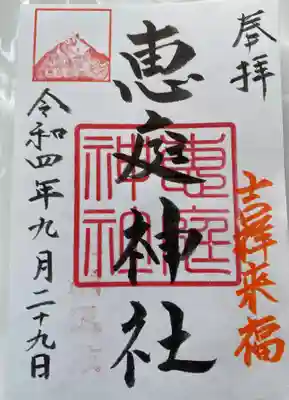 奉拝
吉祥来福
恵庭神社
恵庭
神社
令和四年九月二十九日